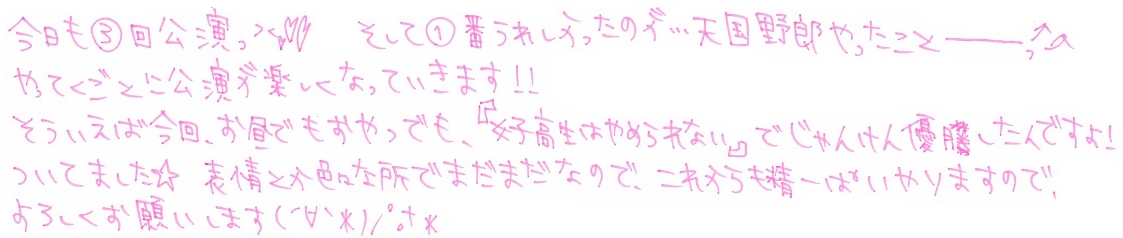 今日も③回公演っ><♡♡ そして①番うれしかったのが…天国野郎やったこと―――っ^^
やってくごとに公演が楽しくなっていきます!!
そういえば今回、お昼でもおやつでも、『女子高生はやめられない』でじゃんけん優勝したんですよ!
ついてました☆ 表情とか色んな所でまだまだなので、これからも精一ぱいやりますので、
よろしくお願いします(´∀`*)/゚.+*